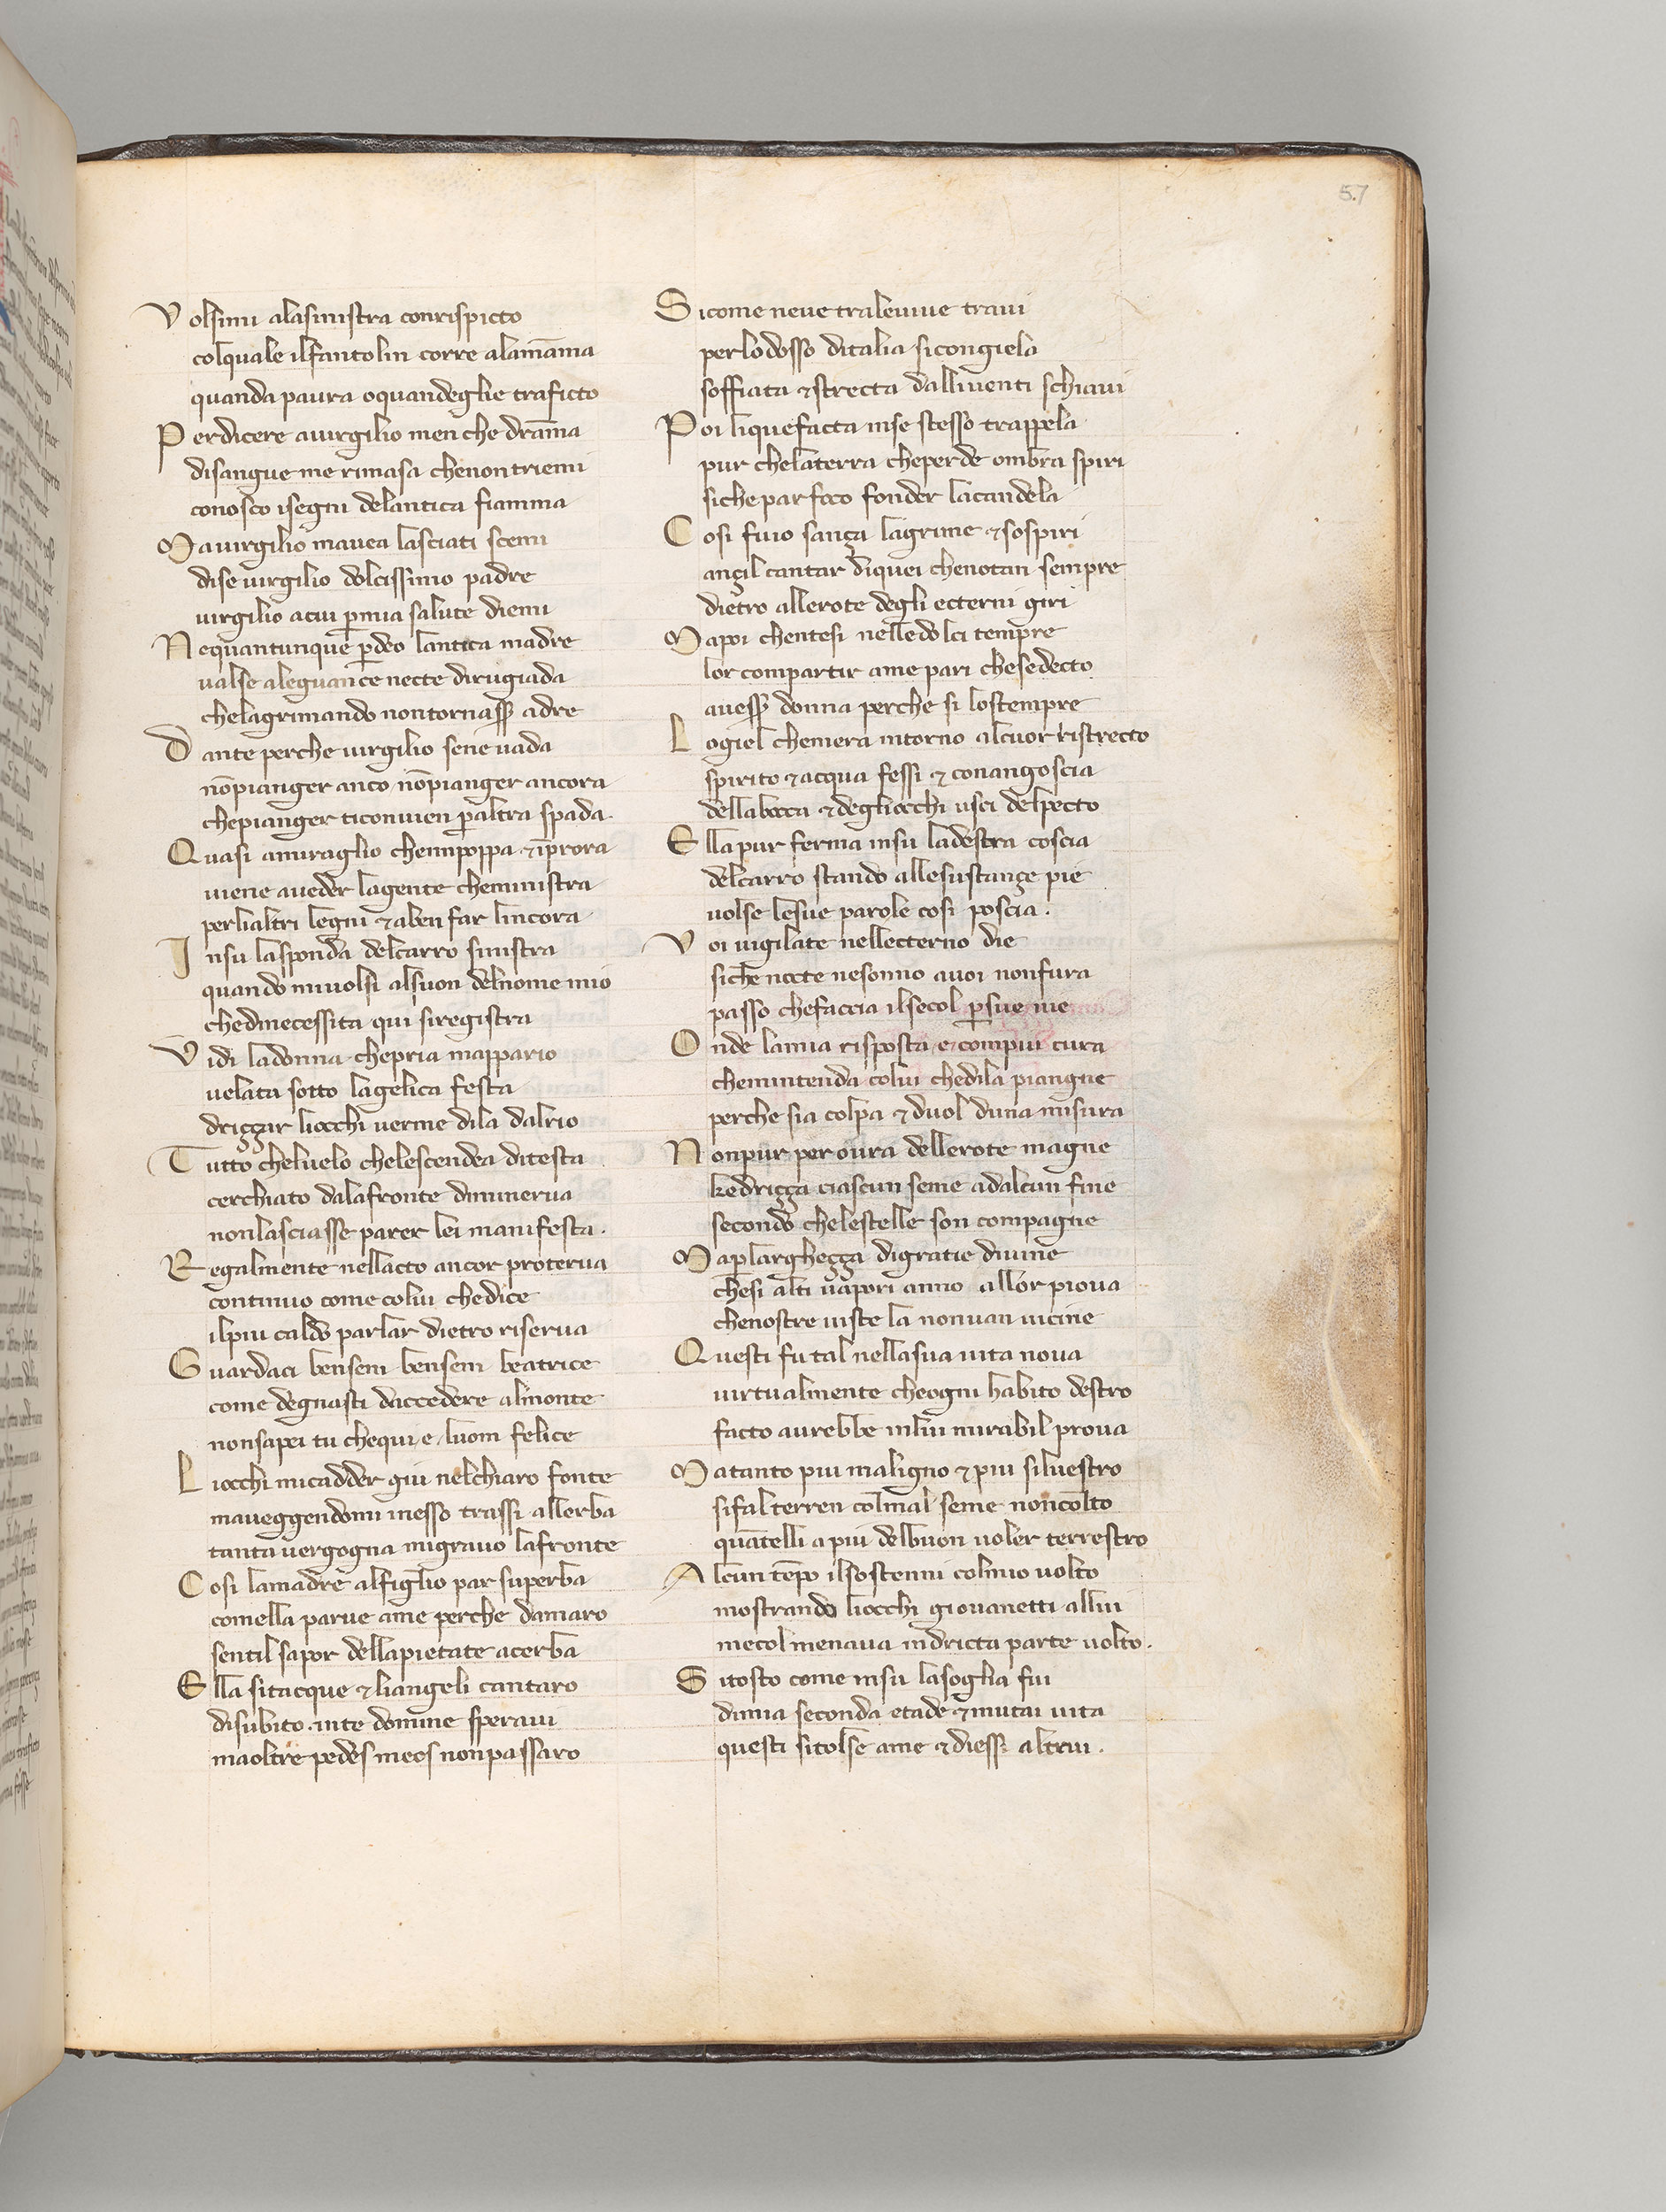 57
Volsimi alasinistra conrispicto
colquale ilfantolin corre alamāma
quanda paura oquandeglie traficto
Perdicere avirgilio menche drāma
disangue me rimasa chenontriemi
conosco isegni delantica fiamma
Mavirgilio mavea lasciati scemi
dise virgilio dolcissimo padre
virgilio acui ꝑmia salute diemi
Nequantunque ꝑdeo lantica madre
valse aleguance necte dirugiada
chelagrimando nontornasse adre
Dante perche virgilio sene vada
nōpianger anco nōpianger ancora
chepianger ticonvien ꝑaltra spada.
Quasi amiraglio chenipoppa ⁊īprora
viene aveder lagente cheministra
perlialtri legni ⁊aben far lincora
Insu lasponda delcarro sinistra
quando mivolsi alsuon delnome mio
chedinecessita qui siregistra
Vidi ladonna chepria mappario
velata sotto lagelica festa
driççar liocchi verme dila dalrio
Tutto chelvelo chelescendea ditesta
cerchiato dalafronte diminerva
nonlasciasse parer lei manifesta.
Regalmente nellacto ancor proterva
continuo come colui chedice
ilpiu caldo parlar dietro riserva
Guardaci bensem bensem beatrice
come degnasti daccedere almonte
nonsapei tu chequi e luom felice
Liocchi micadder giu nelchiaro fonte
maveggendomi inesso trassi allerba
tanta vergogna migravo lafronte
Cosi lamadre alfiglio par superba
comella parve ame perche damaro
sentil sapor dellapietate acerba
Ella sitacque ⁊liangeli cantaro
disubito inte domine speravi
maoltre pedes meos nonpassaro
Sicome neve tralevive travi
perlodosso ditalia sicongiela
soffiata ⁊strecta dalliventi schiavi
Poi liquefacta inse stesso trappela
pur chelaterra cheperde ombra spiri
siche par foco fonder lacandela
Cosi fuio sança lagrime ⁊sospiri
ançil cantar diquei chenotan sempre
dietro allerote degli ecterni giri
Mapoi chentesi nelledolci tempre
lor compartir ame pari chesedecto
avesser donna perche si lostempre
Logiel chemera intorno alcuor ristrecto
spirito ⁊acqua fessi ⁊ conangoscia
dellabocca ⁊degliocchi usci delpecto
Ella pur ferma insu ladestra coscia
delcarro stando allesustançe pie
volse lesue parole cosi poscia.
Voi vigilate nellecterno die
siche nocte nesonno avoi nonfura
passo chefaccia ilsecol ꝑsue vie
Onde lamia risposta e compiu cura
chemintenda colui chedila piangne
perche sia colpa ⁊ duol duna misura
Nonpur per ovra dellerote magne
kedriçça ciascun seme adalcun fine
secondo chelestelle son compagne
Maꝑlargheçça digratie divine
chesi alti vapori anno allor piova
chenostre viste la nonvan vicine
Questi fu tal nellasua vita nova
virtualmente cheogni habito destro
facto avrebbe inlui mirabil prova
Matanto piu maligno ⁊piu silvestro
sifalterren colmal seme noncolto
quātelli a piu delbuon voler terrestro
Alcun tēpo ilsostenni colmio volto
mostrando liocchi giovanetti allui
mecol menava indricta parte volto.
Sitosto come insu lasoglia fui
dimia seconda etade ⁊mutai vita
questi sitolse ame ⁊diesse altrui.